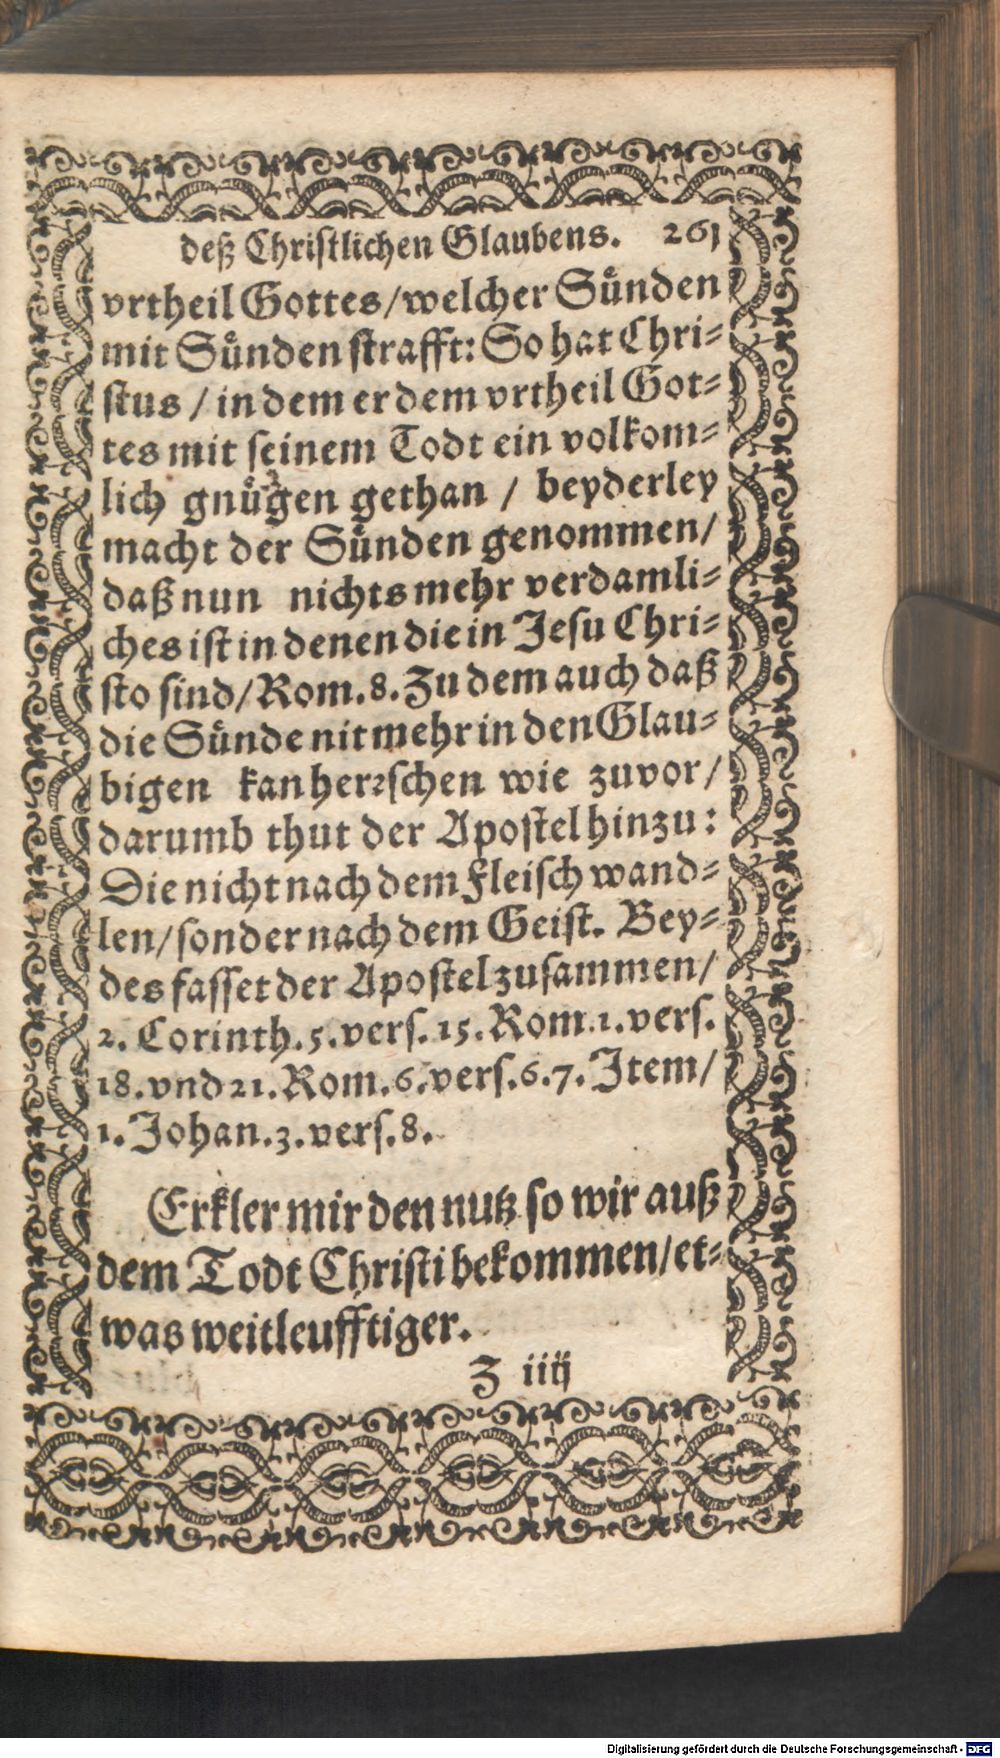 deß Christlichen Glaubens. 261
vrtheil Gottes/welcher Sünden
mit Sünden strafft: So hat Chri-
stus / in dem er dem vrtheil Got-
tes mit seinem Todt ein volkom-
lich gnügen gethan / beyderley
macht der Sünden genommen/
daß nun nichts mehr verdamli-
ches ist in denen die in Jesu Chri-
sto sind/Rom.8. Zu dem auch daß
die Sünde nit mehr in den Glau-
bigen kan herrschen wie zuvor/
darumb thut der Apostel hinzu:
Die nicht nach dem Fleisch wand-
len/sonder nach dem Geist. Bey-
des fasset der Apostel zusammen/
2. Corinth.5.vers.15.Rom.1.vers.
18.vnd 21.Rom.6.vers.6.7. Item/
1. Johan.3.vers.8.
Erkler mir den nutz so wir auß
dem Todt Christi bekommen/et-
was weitleufftiger.
Z iiij
Digitalisierung gefördert durch die Deutsche Forschungsgemeinschaft - DFG